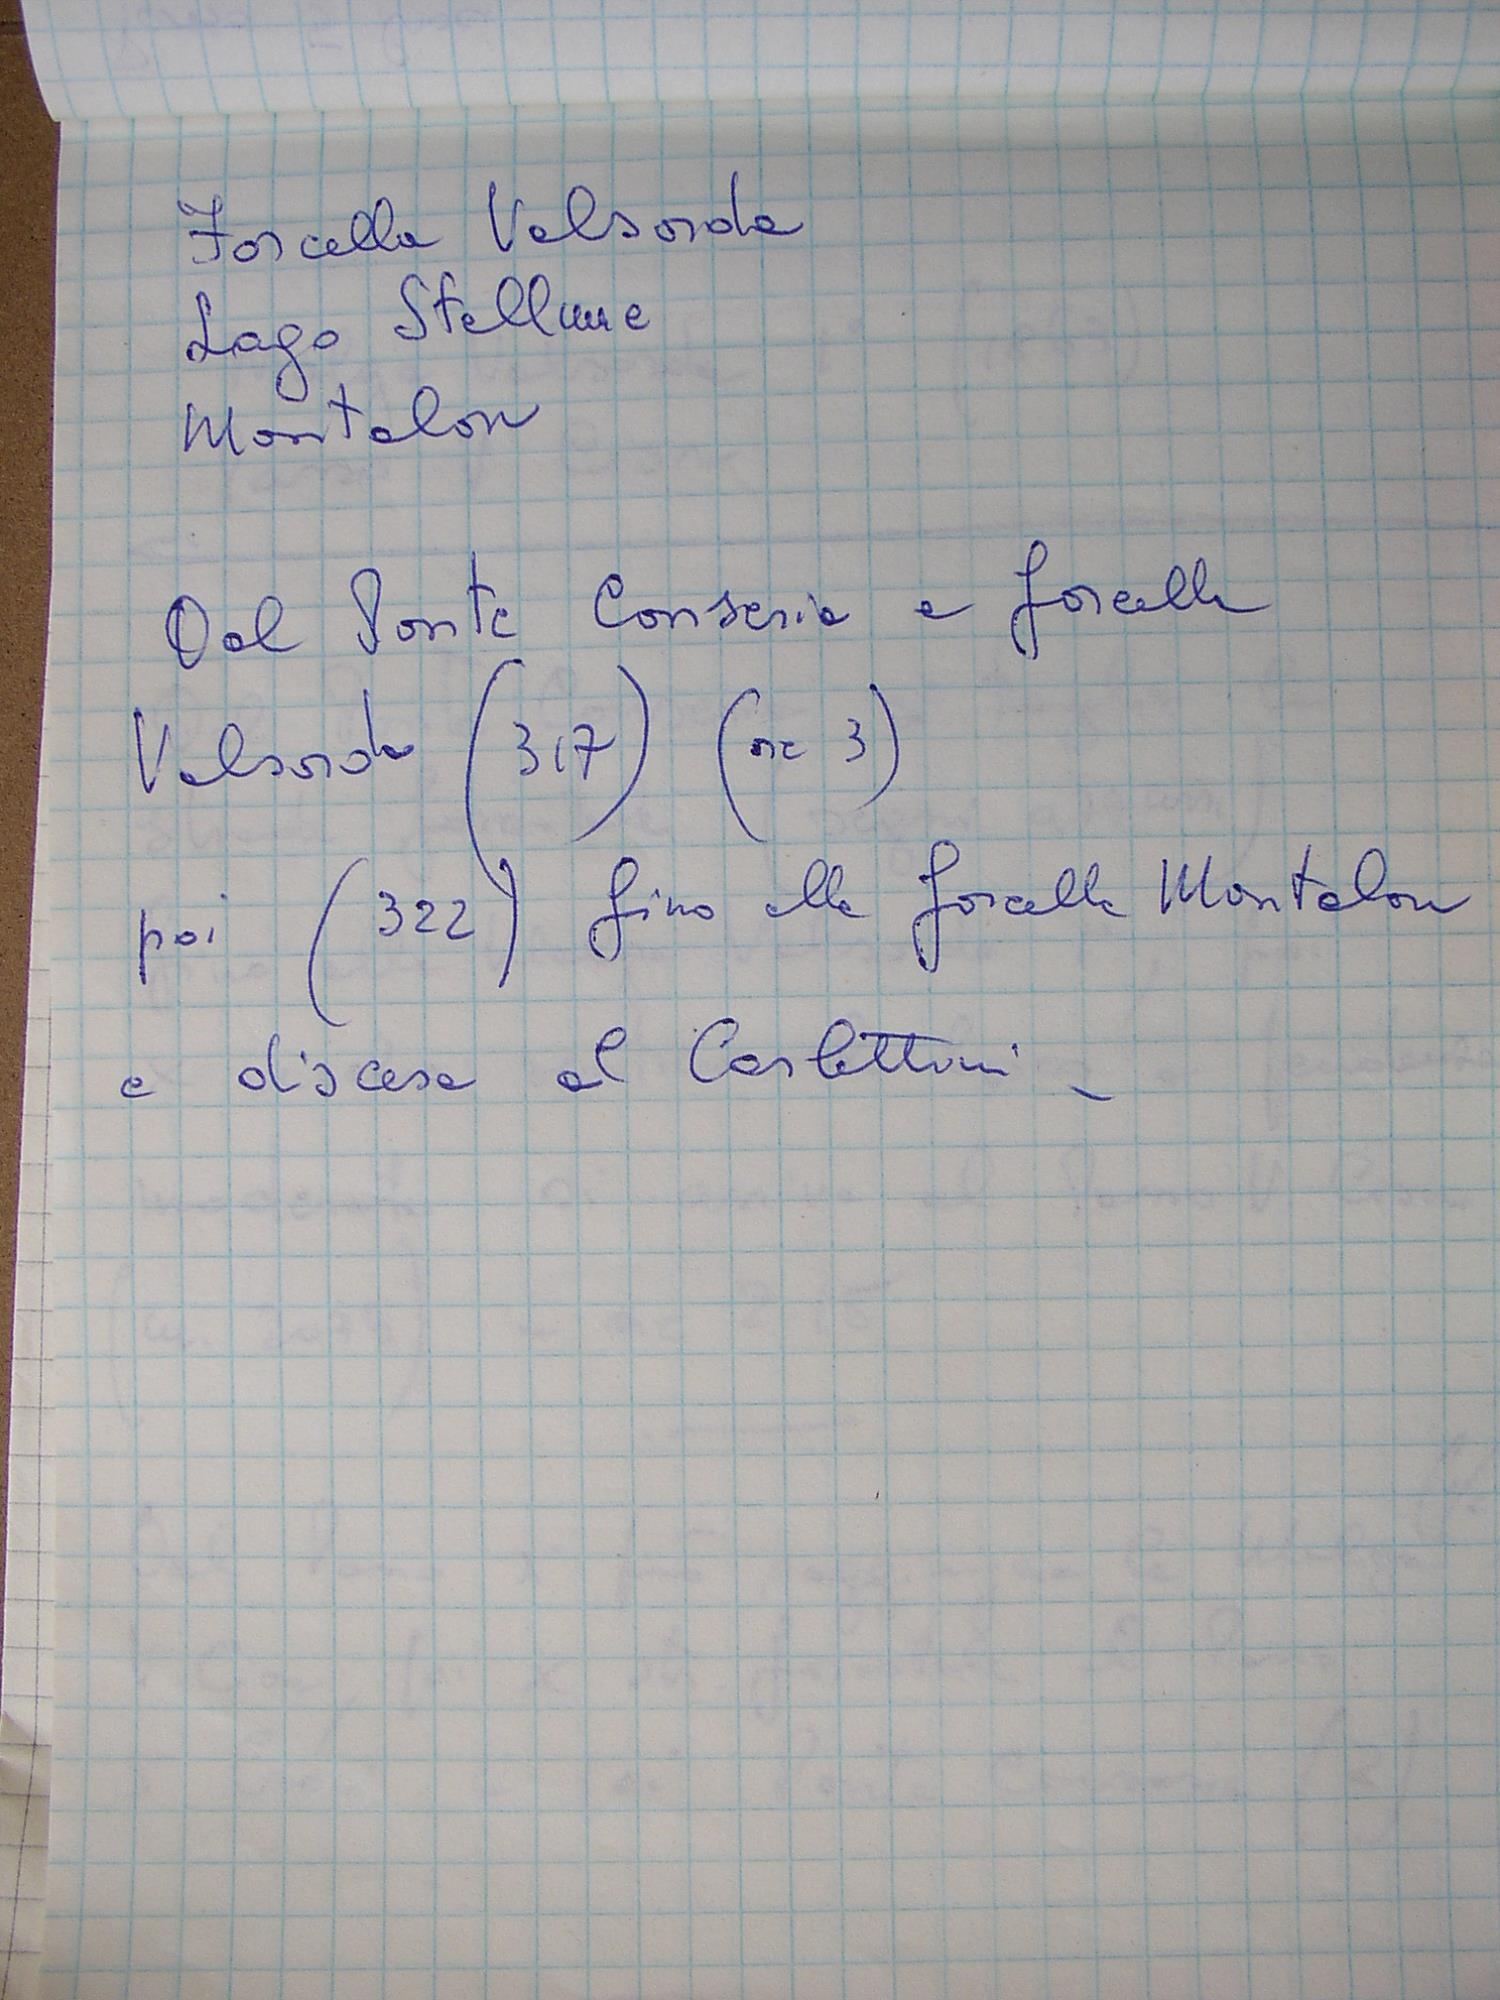 Forcella Valsorda
Lago Stellune
Montalon
Dal Ponte Conseria a forcella
Valsorda (317) (ore 3)
poi (322) fino alla forcella Montalon
e discesa al Carlettini